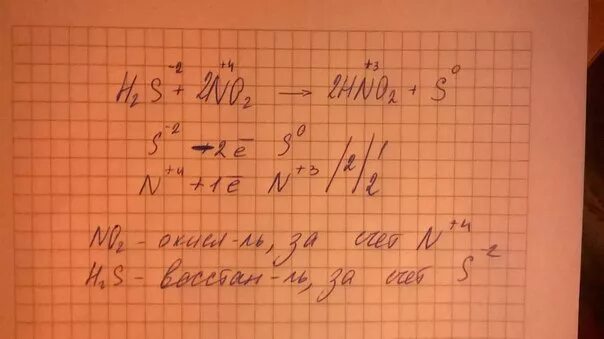 H₂S⁻² + 2N⁺⁴O₂ → 2HN⁺³O₂ + S⁰
S⁻² - 2ē S⁰ 1
N⁺⁴ + 1ē N⁺³ /2/ 2
NO₂ - окисл-ль, за счет N⁺⁴
H₂S - восстан-ль, за счет S⁻²